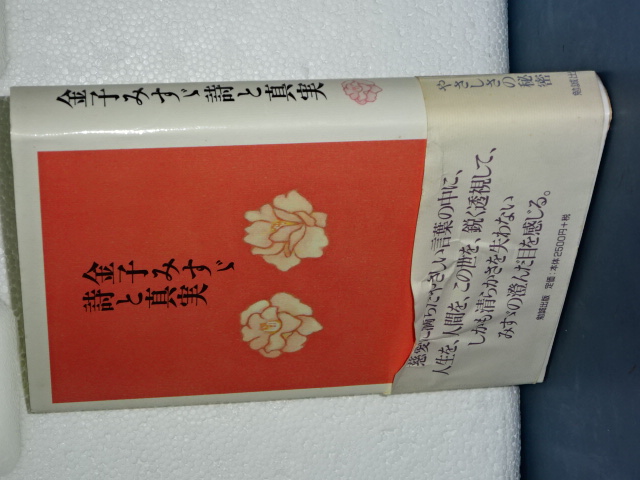 金子みすゞ詩と真実
やさしさの秘密
勉誠出版
金子みすゞ
詩と真実
慈愛に満ちたやさしい言葉の中に、
人生を、人間を、この世を、鋭く透視して、
しかも清らかさを失わない
みすゞの澄んだ目を感じる。
勉誠出版 定価:本体2500円+税